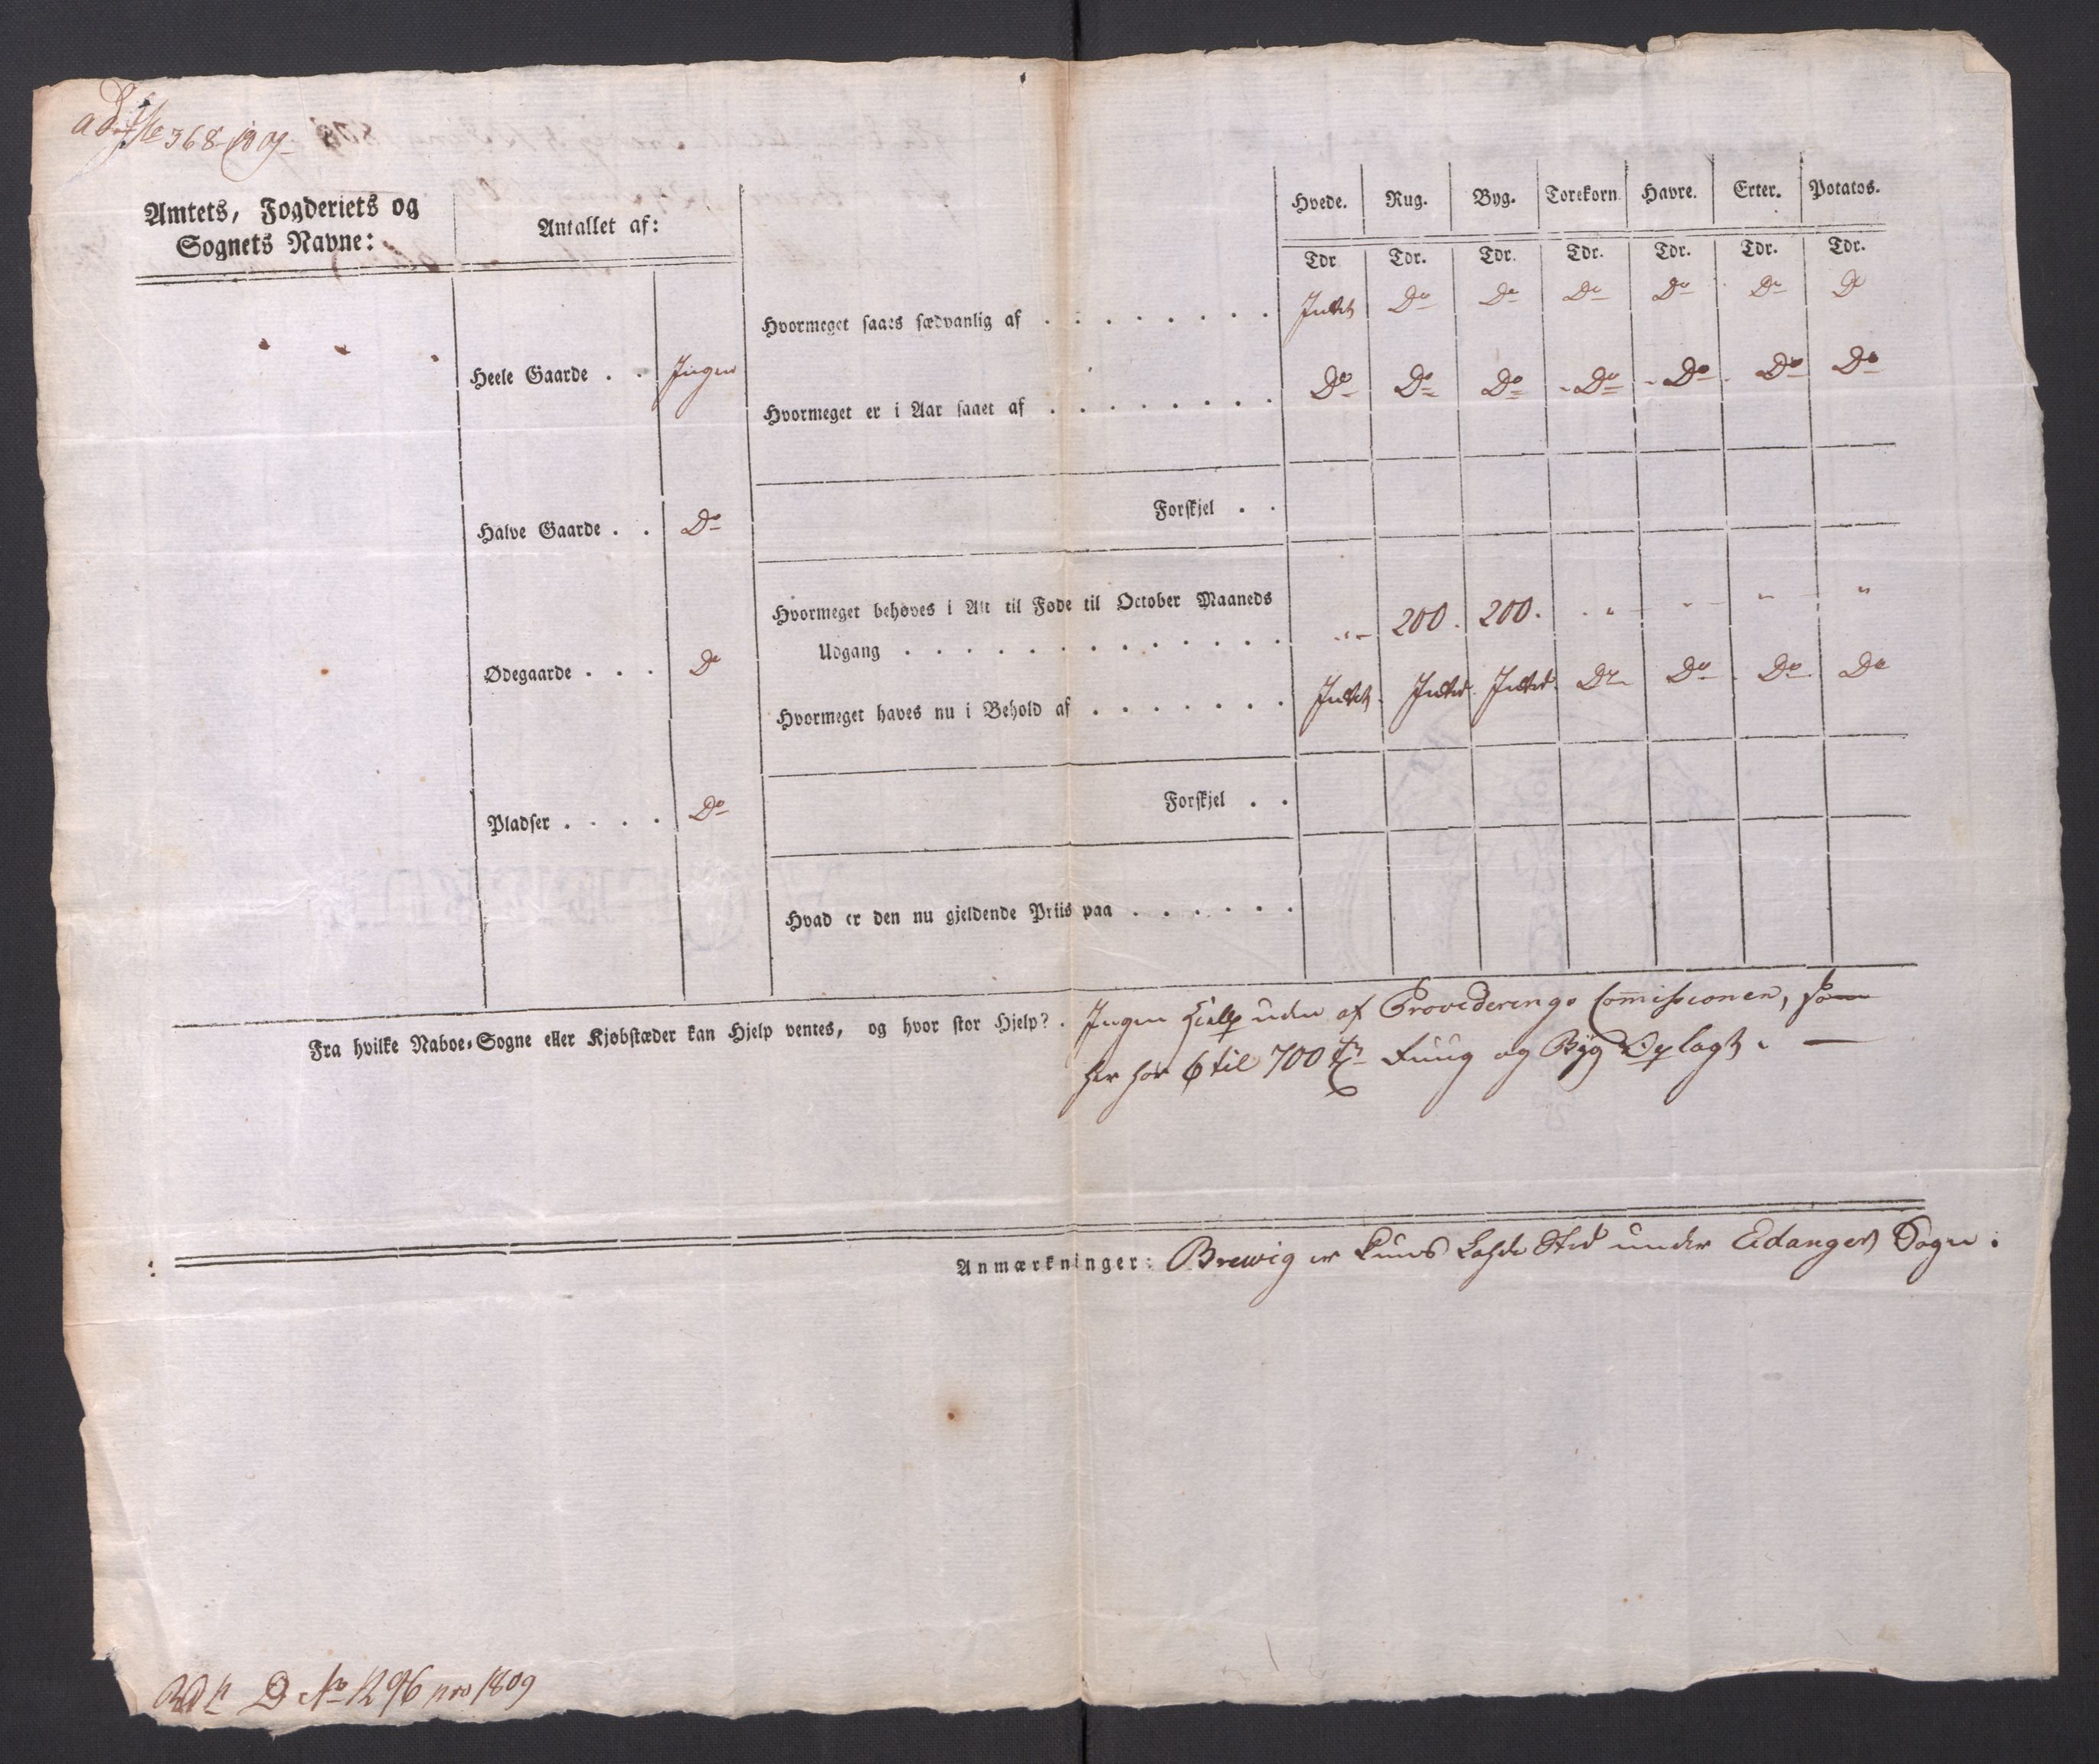 368-1809
Amtets, Fogderiets og
Sognets Navne:
Antallet af:
Hvede. Rug. Byg. Torekorn. Havre. Erter. Potatos.
Tdr. Tdr. Tdr. Tdr. Tdr. Tdr. Tdr.
Hvormeget saaes sædvanlig af . . . . . . . . Intet Do Do Do Do Do Do
Heele Gaarde . . Ingen
Hvormeget er i Aar saaet af . . . . . . . . Do Do Do Do Do Do Do
Halve Gaarde . . Do
Forskjel . .
Hvormeget behøves i Alt til Føde til October Maaneds
Udgang . . . . . . . . . . . . . „ 200. 200. „ „ „ „
Ødegaarde . . . Do
Hvormeget haves nu i Behold af . . . . . . . Intet. Intet. Intet. Do Do Do Do
Forskjel . .
Pladser . . . . Do
Hvad er den nu gjeldende Priis paa . . . . . .
Fra hvilke Naboe-Sogne eller Kjøbstæder kan Hjelp ventes, og hvor stor Hjelp? . Ingen Hielp uden af Provederings Commissionen, som
her har 6 til 700 Tr Ruug og Byg Oplagt. —
Anmærkninger: Brewig er kuns Lahde Sted under Eidangers Sogn.
D No 1296 pro 1809